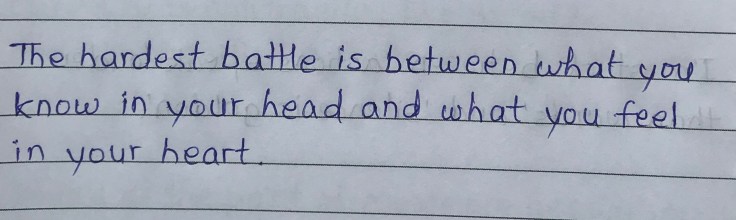 The hardest battle is between what you
know in your head and what you feel
in your heart.